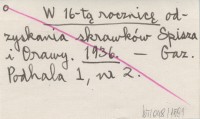 W 16-tą rocznicę od-
zyskania skrawków Spisza
i Orawy. 1936. — Gaz.
Podhala 1, nr 2.